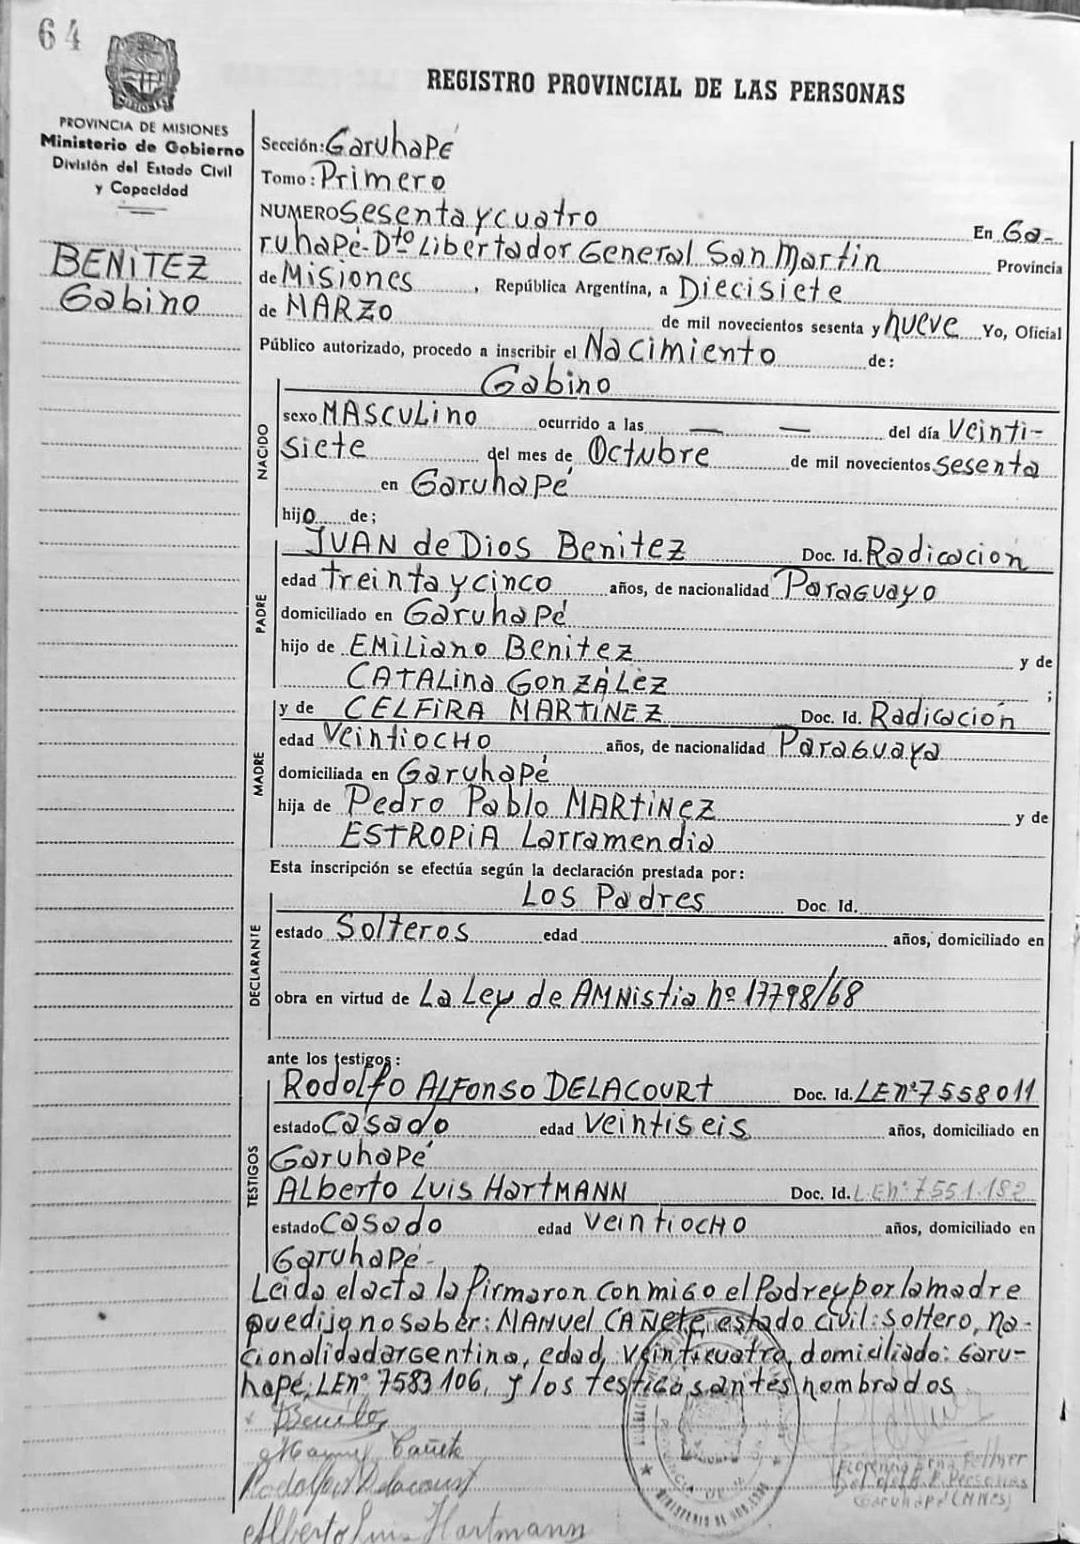 64
REGISTRO PROVINCIAL DE LAS PERSONAS
PROVINCIA DE MISIONES
Ministerio de Gobierno
División del Estado Civil
y Capacidad
BENITEZ
Gabino
Sección: Garuhapé
Tomo: Primero
NUMERO Sesenta y cuatro En Ga-
ruhapé-Dto Libertador General San Martin Provincia
de Misiones, República Argentina, a Diecisiete
de MARZO de mil novecientos sesenta y nueve Yo, Oficial
Público autorizado, procedo a inscribir el Nacimiento de:
Gabino
NACIDO
sexo MASCULINO ocurrido a las — — del día Veinti-
siete del mes de Octubre de mil novecientos sesenta
en Garuhapé
hijo de;
PADRE
JUAN de Dios Benitez Doc. Id. Radicación
edad treinta y cinco años, de nacionalidad Paraguayo
domiciliado en Garuhapé
hijo de EMiliano Benitez y de
CATALina GonZÁLEZ ;
MADRE
y de CELFIRA MARTINEZ Doc. Id. Radicación
edad Veintiocho años, de nacionalidad Paraguaya
domiciliada en Garuhapé
hija de Pedro Pablo MARTINEZ y de
ESTROPIA Larramendia
Esta inscripción se efectúa según la declaración prestada por:
DECLARANTE
Los Padres Doc. Id.
estado Solteros edad años, domiciliado en
obra en virtud de La Ley de AMNistia nº 17798/68
ante los testigos:
TESTIGOS
Rodolfo ALFONSO DELACOURT Doc. Id. LE nº 7558011
estado Casado edad Veintiseis años, domiciliado en
Garuhapé
ALberto LUIS HartMANN Doc. Id. L.E nº 7551.182
estado Casado edad Veintiocho años, domiciliado en
Garuhapé-
Leida el acta la firmaron conmigo el Padre y por la madre
que dijo no saber: MANUEL CAÑETE, estado civil: soltero, na-
cionalidad argentina, edad, veinticuatro, domiciliado: Garu-
hapé, LE nº 7583106, y los testigos antes nombrados
Benitez
Manuel Cañete
Rodolfo Delacourt
Alberto Luis Hartmann
Garuhapé (MNES)